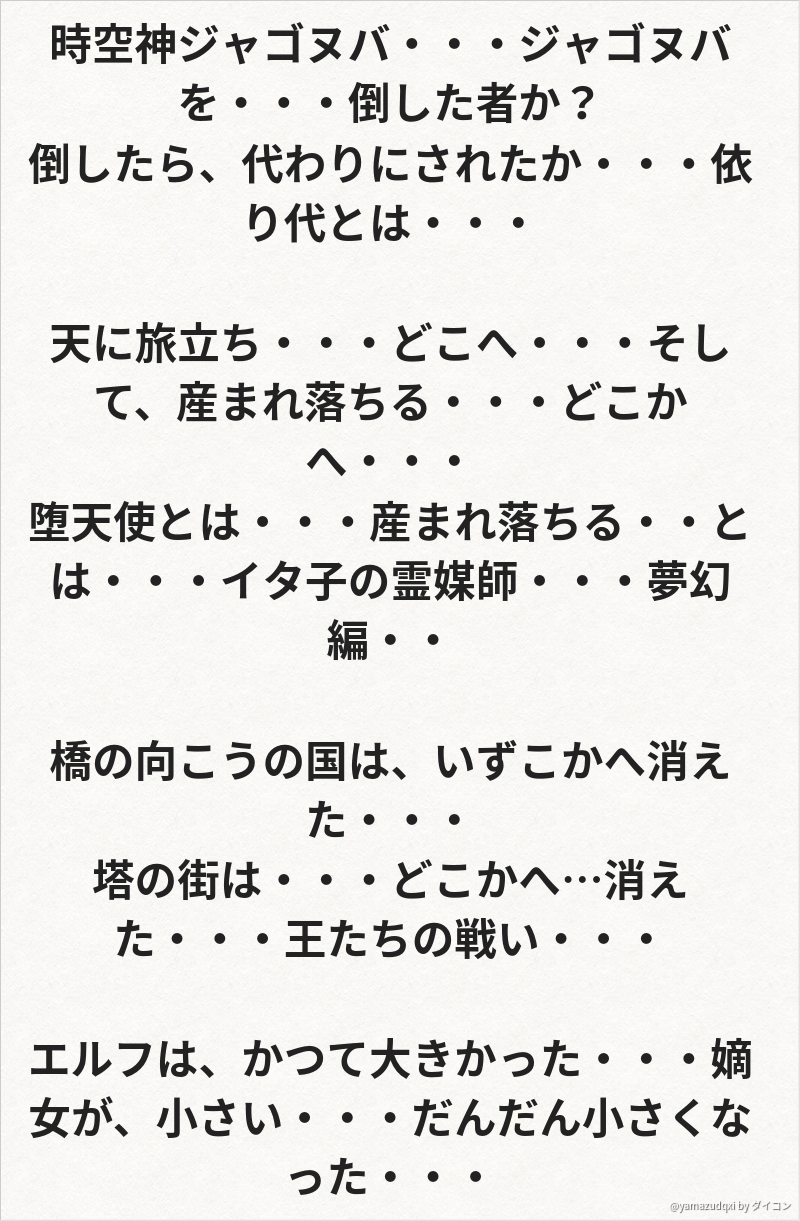 時空神ジャゴヌバ・・・ジャゴヌバ
を・・・倒した者か？
倒したら、代わりにされたか・・・依
り代とは・・・
天に旅立ち・・・どこへ・・・そし
て、産まれ落ちる・・・どこか
へ・・・
堕天使とは・・・産まれ落ちる・・と
は・・・イタ子の霊媒師・・・夢幻
編・・
橋の向こうの国は、いずこかへ消え
た・・・
塔の街は・・・どこかへ…消え
た・・・王たちの戦い・・・
エルフは、かつて大きかった・・・嫡
女が、小さい・・・だんだん小さくな
った・・・
@yamazudqxi by ダイコン